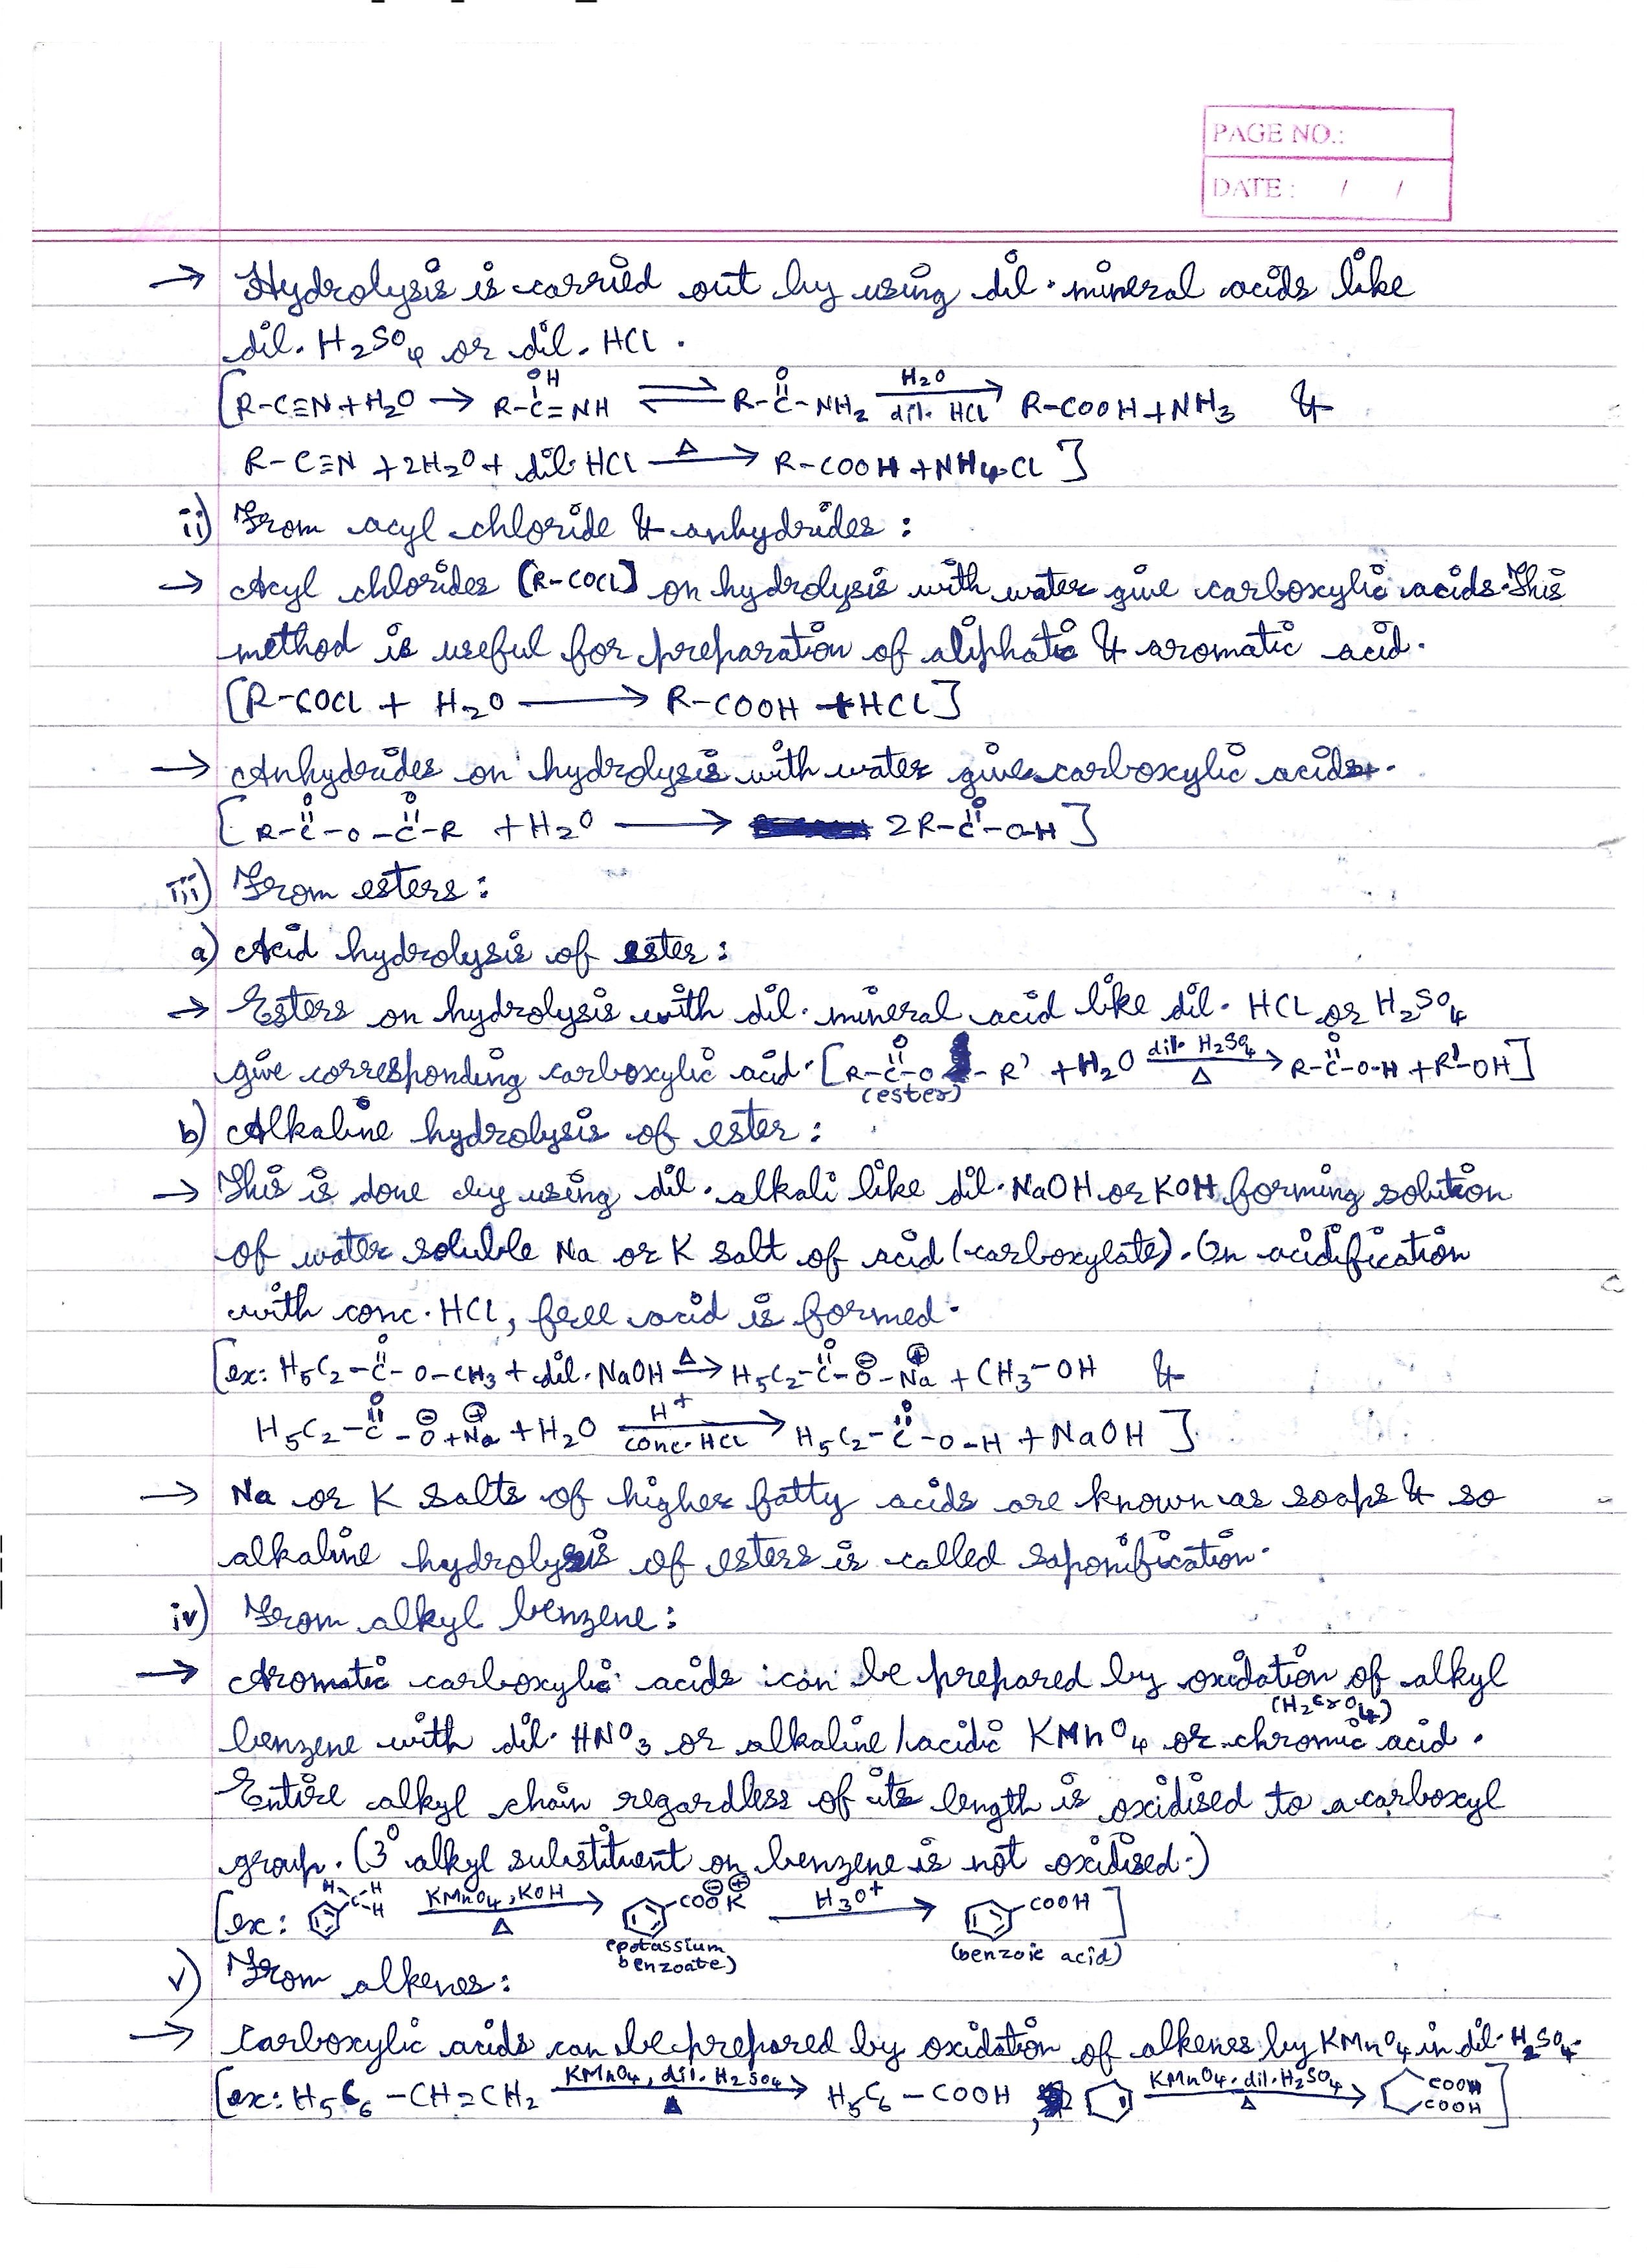 PAGE NO.:
DATE : / /
→ Hydrolysis is carried out by using dil. mineral acids like
dil. H₂SO₄ or dil. HCl.
[R-C≡N + H₂O → R-C(OH)=NH ⇌ R-C(=O)-NH₂ —H₂O/dil. HCl→ R-COOH + NH₃ &
R-C≡N + 2H₂O + dil. HCl —Δ→ R-COOH + NH₄Cl]
ii) From acyl chloride & anhydrides :
→ Acyl chlorides [R-COCl] on hydrolysis with water give carboxylic acids. This
method is useful for preparation of aliphatic & aromatic acid.
[R-COCl + H₂O ⟶ R-COOH + HCl]
→ Anhydrides on hydrolysis with water give carboxylic acids.
[R-C(=O)-O-C(=O)-R + H₂O ⟶ 2R-C(=O)-O-H]
iii) From esters :
a) Acid hydrolysis of ester :
→ Esters on hydrolysis with dil. mineral acid like dil. HCl or H₂SO₄
give corresponding carboxylic acid. [R-C(=O)-O-R' (ester) + H₂O —dil. H₂SO₄/Δ→ R-C(=O)-O-H + R'-OH]
b) Alkaline hydrolysis of ester :
→ This is done by using dil. alkali like dil. NaOH or KOH forming solution
of water soluble Na or K salt of acid (carboxylate). On acidification
with conc. HCl, free acid is formed.
[ex: H₅C₂-C(=O)-O-CH₃ + dil. NaOH —Δ→ H₅C₂-C(=O)-O⊖-Na⊕ + CH₃-OH &
H₅C₂-C(=O)-O⊖+Na⊕ + H₂O —H⁺/conc. HCl→ H₅C₂-C(=O)-O-H + NaOH]
→ Na or K salts of higher fatty acids are known as soaps & so
alkaline hydrolysis of esters is called saponification.
iv) From alkyl benzene :
→ Aromatic carboxylic acids can be prepared by oxidation of alkyl
benzene with dil. HNO₃ or alkaline/acidic KMnO₄ or chromic acid (H₂CrO₄).
Entire alkyl chain regardless of its length is oxidised to a carboxyl
group. (3° alkyl substituent on benzene is not oxidised.)
[ex: C H H H —KMnO₄, KOH/Δ→ COO⊖K⊕ (potassium benzoate) —H₃O⁺→ COOH (benzoic acid)]
v) From alkenes :
→ Carboxylic acids can be prepared by oxidation of alkenes by KMnO₄ in dil. H₂SO₄.
[ex: H₅C₆-CH=CH₂ —KMnO₄, dil. H₂SO₄/Δ→ H₅C₆-COOH, —KMnO₄, dil. H₂SO₄/Δ→ COOH COOH]